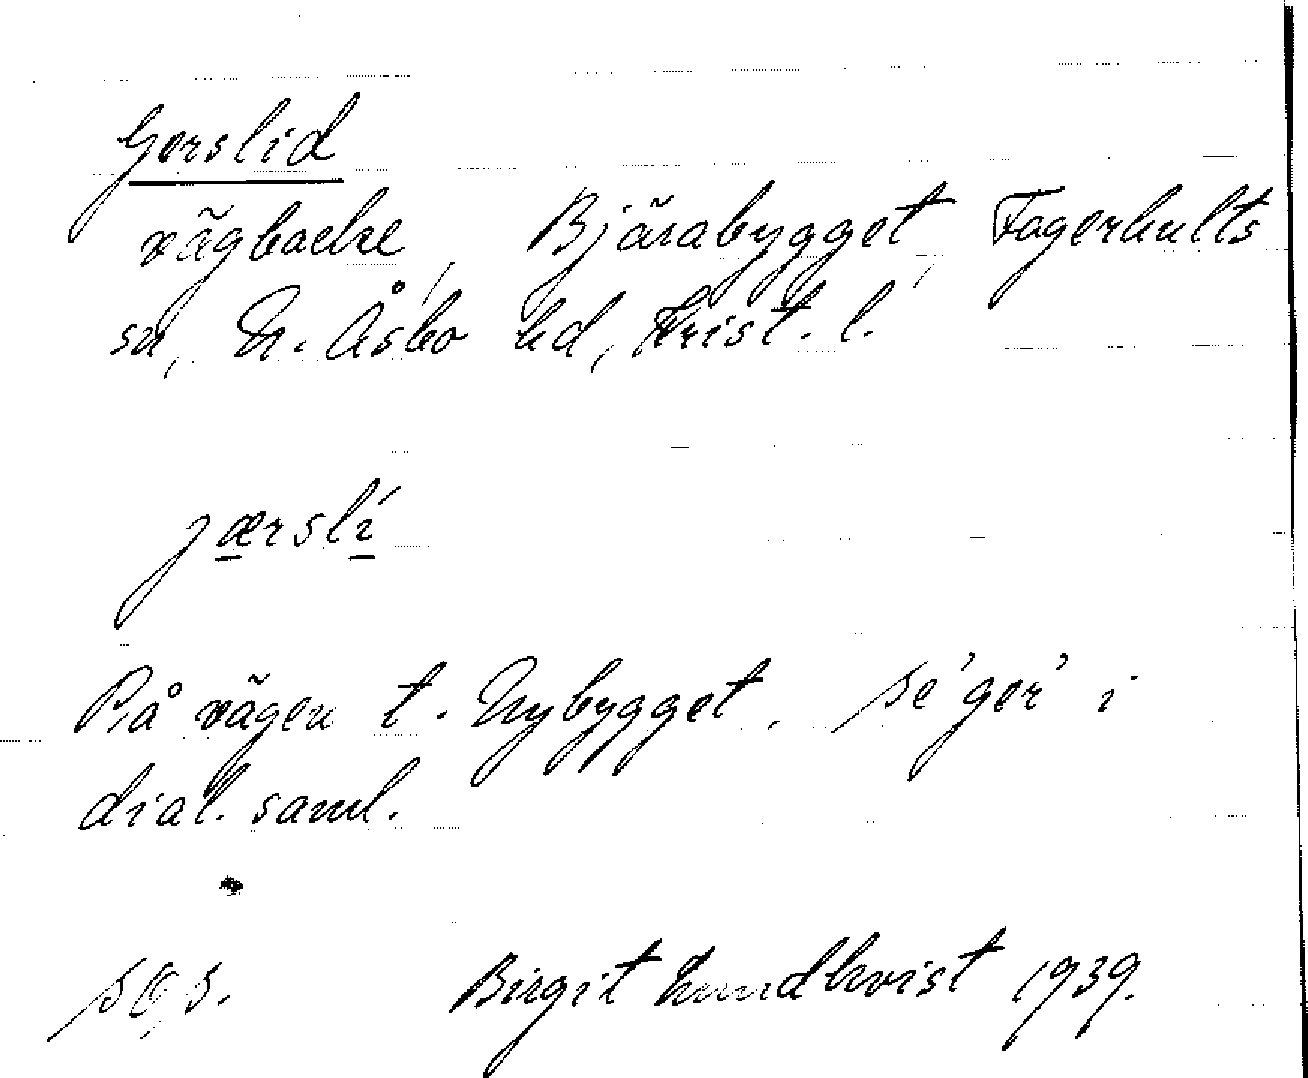 Gerslid
vägbacke, Bjärabygget, Fagerhults
sn, N. Åsbo hd, Krist. l.
jærslí
På vägen t. Nybygget. se 'ger' i
dial. saml.
Birgit Lundkvist 1939.